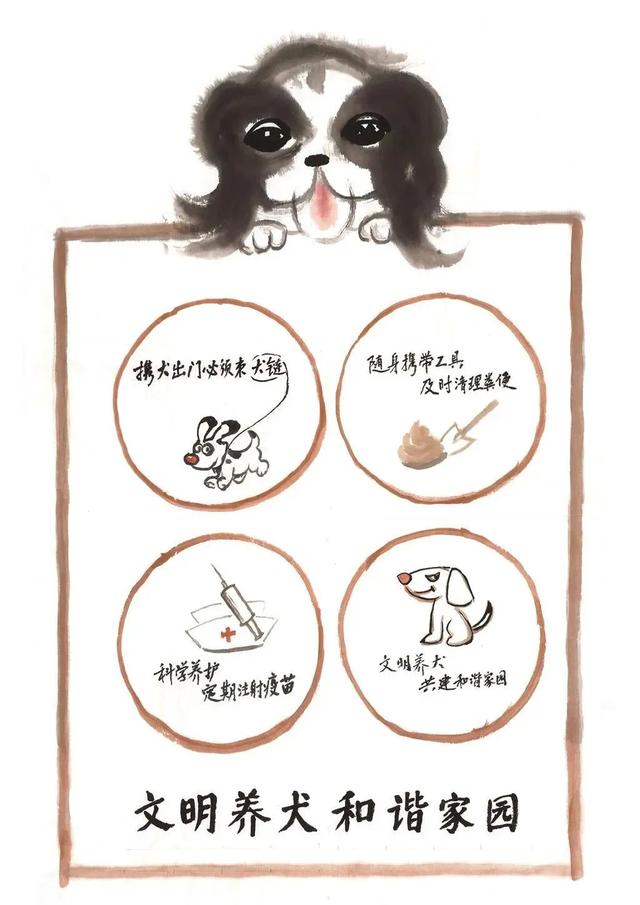 携犬出门必须束犬链
随身携带工具
及时清理粪便
科学养护
定期注射疫苗
文明养犬
共建和谐家园
文明养犬和谐家园